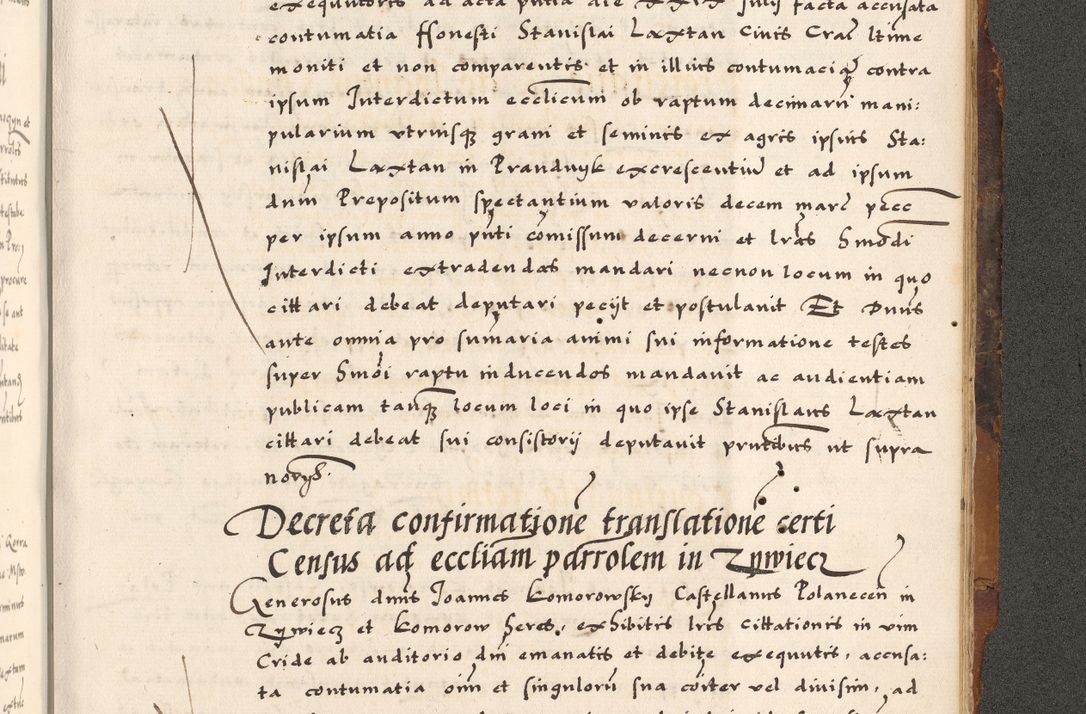 exequutoris ad acta pntia die XXIX Julij facta accusata
contumatia ffonesti Stanislai Laxtan Civis Crac ltime
moniti et non comparentis et in illius contumaciā contra
ipsum Interdictum ecclicum ob raptum decimarū mani:
pularium utriusq grani et seminis ex agris ipsius Sta:
nislai Laxtan in Prandnyk excrescentiū et ad ipsum
dnm Prepositum spectantium valoris decem marc pecc
per ipsum anno pnti cōmissum decerni et lras Smōdi
Interdicti extradendas mandari necnon locum in quo
cittari debeat deputari pecijt et postulavit Et Dnus
ante omnia pro sumaria animi sui informatione testes
super Smōi raptu inducendos mandavit ac audientiam
publicam tanq locum loci in quo ipse Stanislaus Laxtan
cittari debeat sui consistorij deputavit pntibus ut supra
norijs.
Decreta confirmatione translatione certi
Census ad eccliam parrolem in Zywiecz
Generosus dnus Joannes Komorowsky Castellanus Polanecen in
Zywiecz et Komorow heres, exhibitis lris cittationis in vim
Cride ab auditorio dni emanatis et debite exequutis, accusa:
ta contumatia oim et singulorū sua cōiter vel divisim, ad